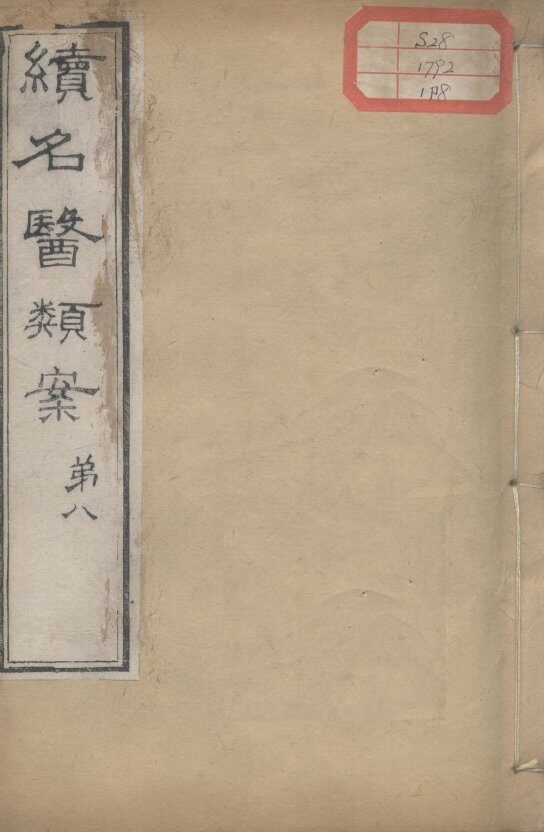 續名醫類案
弟八
S28
1792
1:18